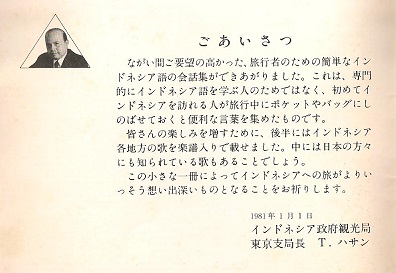 ごあいさつ
ながい間ご要望の高かった、旅行者のための簡単なイン
ドネシア語の会話集ができあがりました。これは、専門
的にインドネシア語を学ぶ人のためではなく、初めてイ
ンドネシアを訪れる人が旅行中にポケットやバッグにし
のばせておくと便利な言葉を集めたものです。
皆さんの楽しみを増すために、後半にはインドネシア
各地方の歌を楽譜入りで載せました。中には日本の方々
にも知られている歌もあることでしょう。
この小さな一冊によってインドネシアへの旅がよりい
っそう想い出深いものとなることをお祈りします。
1981年1月1日
インドネシア政府観光局
東京支局長　T. ハサン